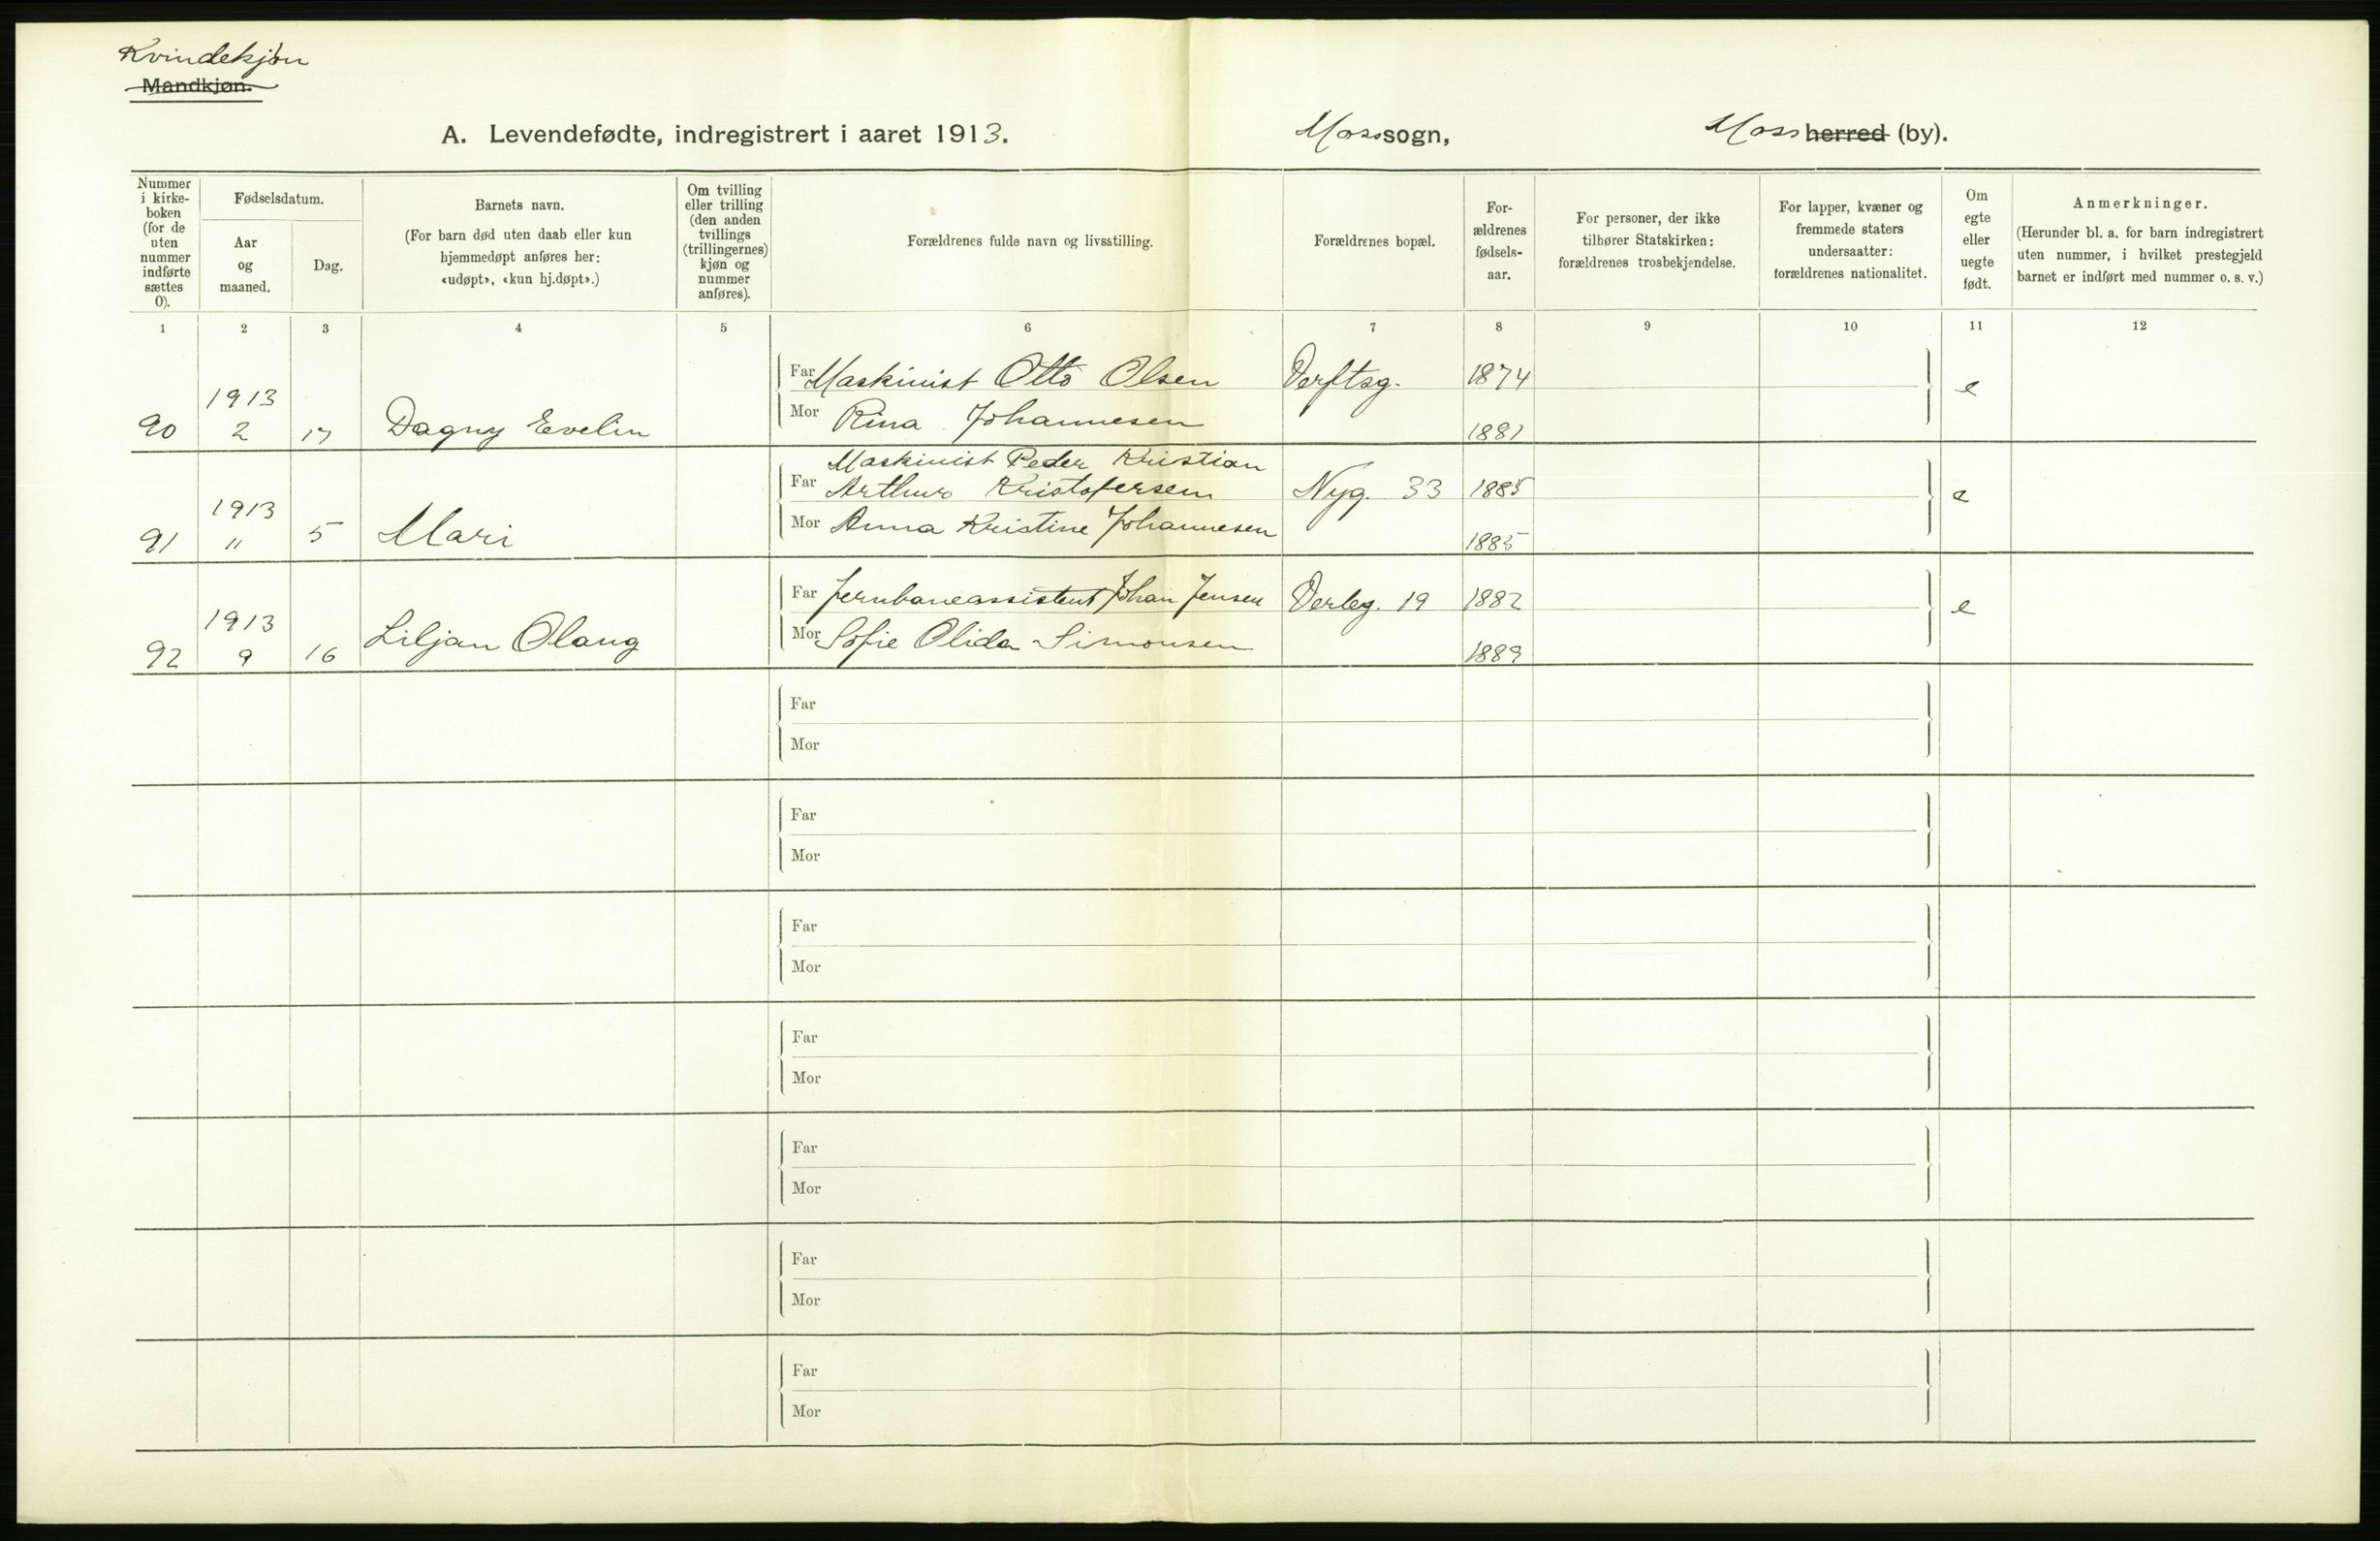 Kvindekjøn
Mandkjøn.
A. Levendefødte, indregistrert i aaret 1913. Moss sogn, Moss herred (by).
Nummer i kirkeboken (for de uten nummer indførte sættes 0).
Fødselsdatum.
Aar og maaned.
Dag.
Barnets navn.
(For barn død uten daab eller kun
hjemmedøpt anføres her:
«udøpt», «kun hj.døpt».)
Om tvilling
eller trilling
(den anden
tvillings
(trillingernes)
kjøn og
nummer
anføres).
Forældrenes fulde navn og livsstilling.
Forældrenes bopæl.
For-
ældrenes
fødsels-
aar.
For personer, der ikke
tilhører Statskirken:
forældrenes trosbekjendelse.
For lapper, kvæner og
fremmede staters
undersaatter:
forældrenes nationalitet.
Om
egte
eller
uegte
født.
Anmerkninger.
(Herunder bl. a. for barn indregistrert
uten nummer, i hvilket prestegjeld
barnet er indført med nummer o. s. v.)
1 2 3 4 5 6 7 8 9 10 11 12
Far Maskinist Otto Olsen Verftsg. 1874
1913 e
90 2 17 Dagny Evelin Mor Rina Johannesen 1881
Maskinist Peder Kristian
Far Arthur Kristofersen Nyg. 33 1885 e
1913
91 " 5 Mari Mor Anna Kristine Johannesen 1885
Far Jernbaneassistent Johan Jensen Verleg. 19 1882 e
1913
92 9 16 Liljan Olaug Mor Sofie Olida Simonsen 1889
Far
Mor
Far
Mor
Far
Mor
Far
Mor
Far
Mor
Far
Mor
Far
Mor